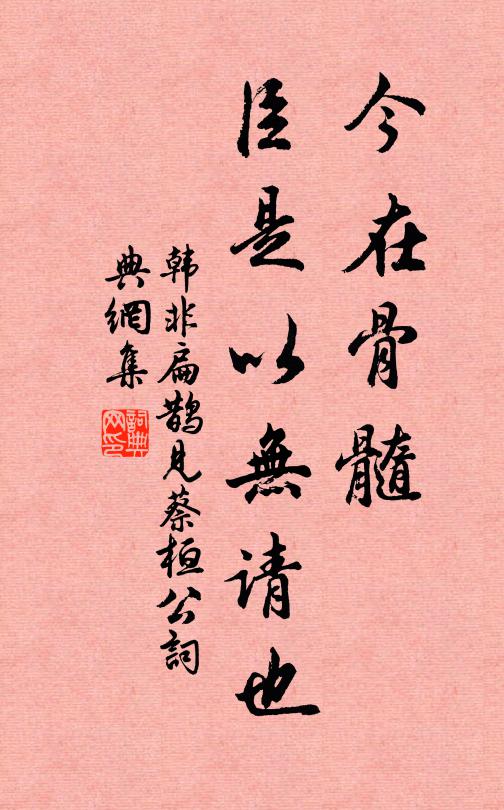 今在骨髓
臣是以無请也
韩非扁鹊見蔡桓公詞
典網集
詞典
网印